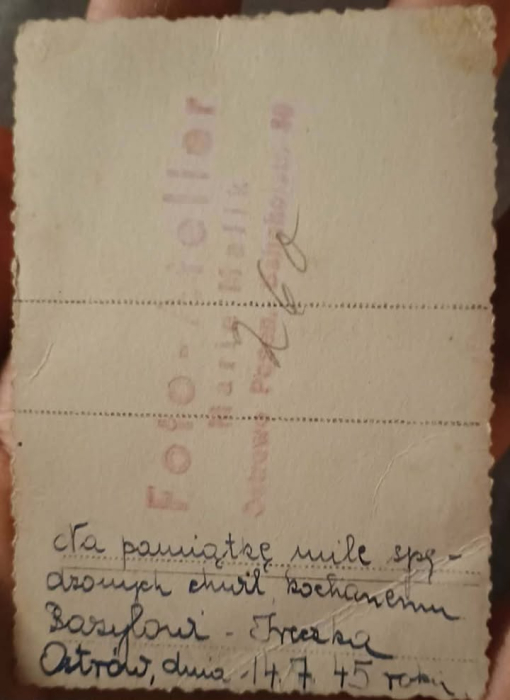 Foto-Atelier
Maria Malik
Ostrowo
260
Na pamiątkę mile spę-
dzonych chwil kochanemu
Bazylowi - Ireczka
Ostrów, dnia 14.7.45 roku